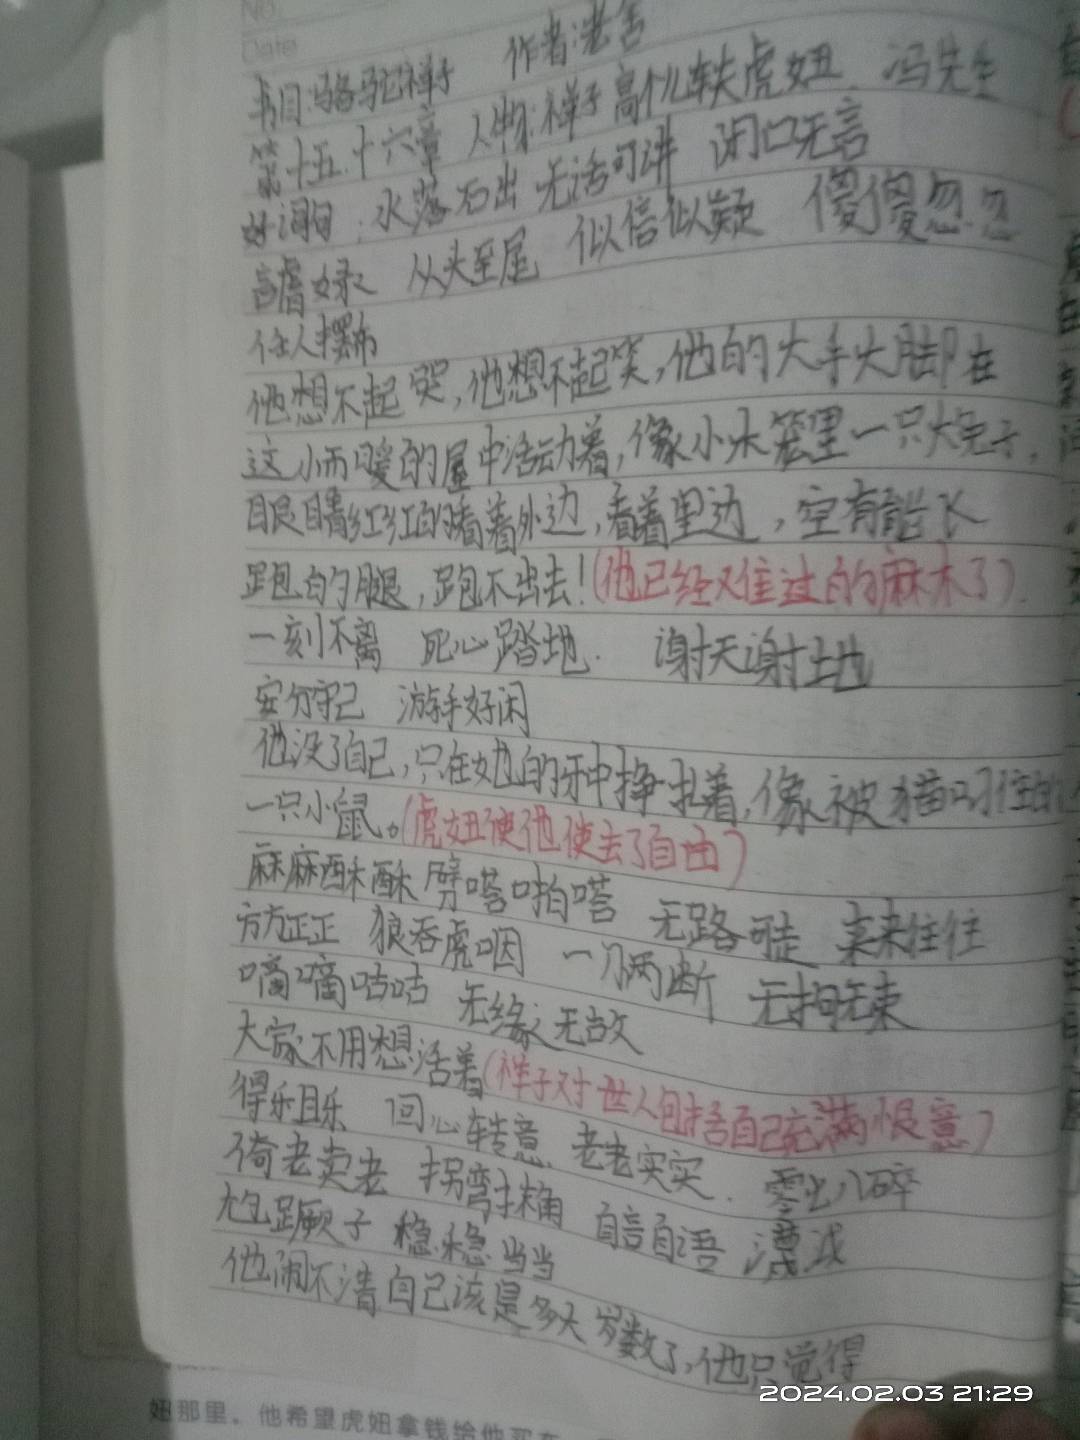 No.
Date
书目:骆驼祥子 作者:老舍
第十五.十六章 人物:祥子 高个儿车夫 虎妞 冯先生
好词句:水落石出 无话可讲 闭口无言
从头至尾 似信似疑 傻傻忽忽
任人摆布
他想不起哭,他想不起笑,他的大手大脚在
这小而暖的屋中活动着,像小木笼里一只大兔子,
眼睛红红的看着外边,看着里边,空有能飞
跑的腿,跑不出去!(他已经难过的麻木了).
一刻不离 死心踏地. 谢天谢土地
安分守己 游手好闲
他没了自己,只在她的牙中挣扎着,像被猫叼住的
一只小鼠。(虎妞使他使去了自由)
麻麻酥酥 劈嗒啪嗒 无路可走 来来往往
方方正正 狼吞虎咽 一刀两断 无拘无束
嘀嘀咕咕 无缘无故
大家不用想活着(祥子对世人包括自己充满恨意)
得乐且乐 回心转意 老老实实. 零七八碎
倚老卖老 拐弯抹角 自言自语
尥蹶子 稳稳当当
他闹不清自己该是多大岁数了,他只觉得
妞那里。他希望虎妞拿钱给他买车
2024.02.03 21:29